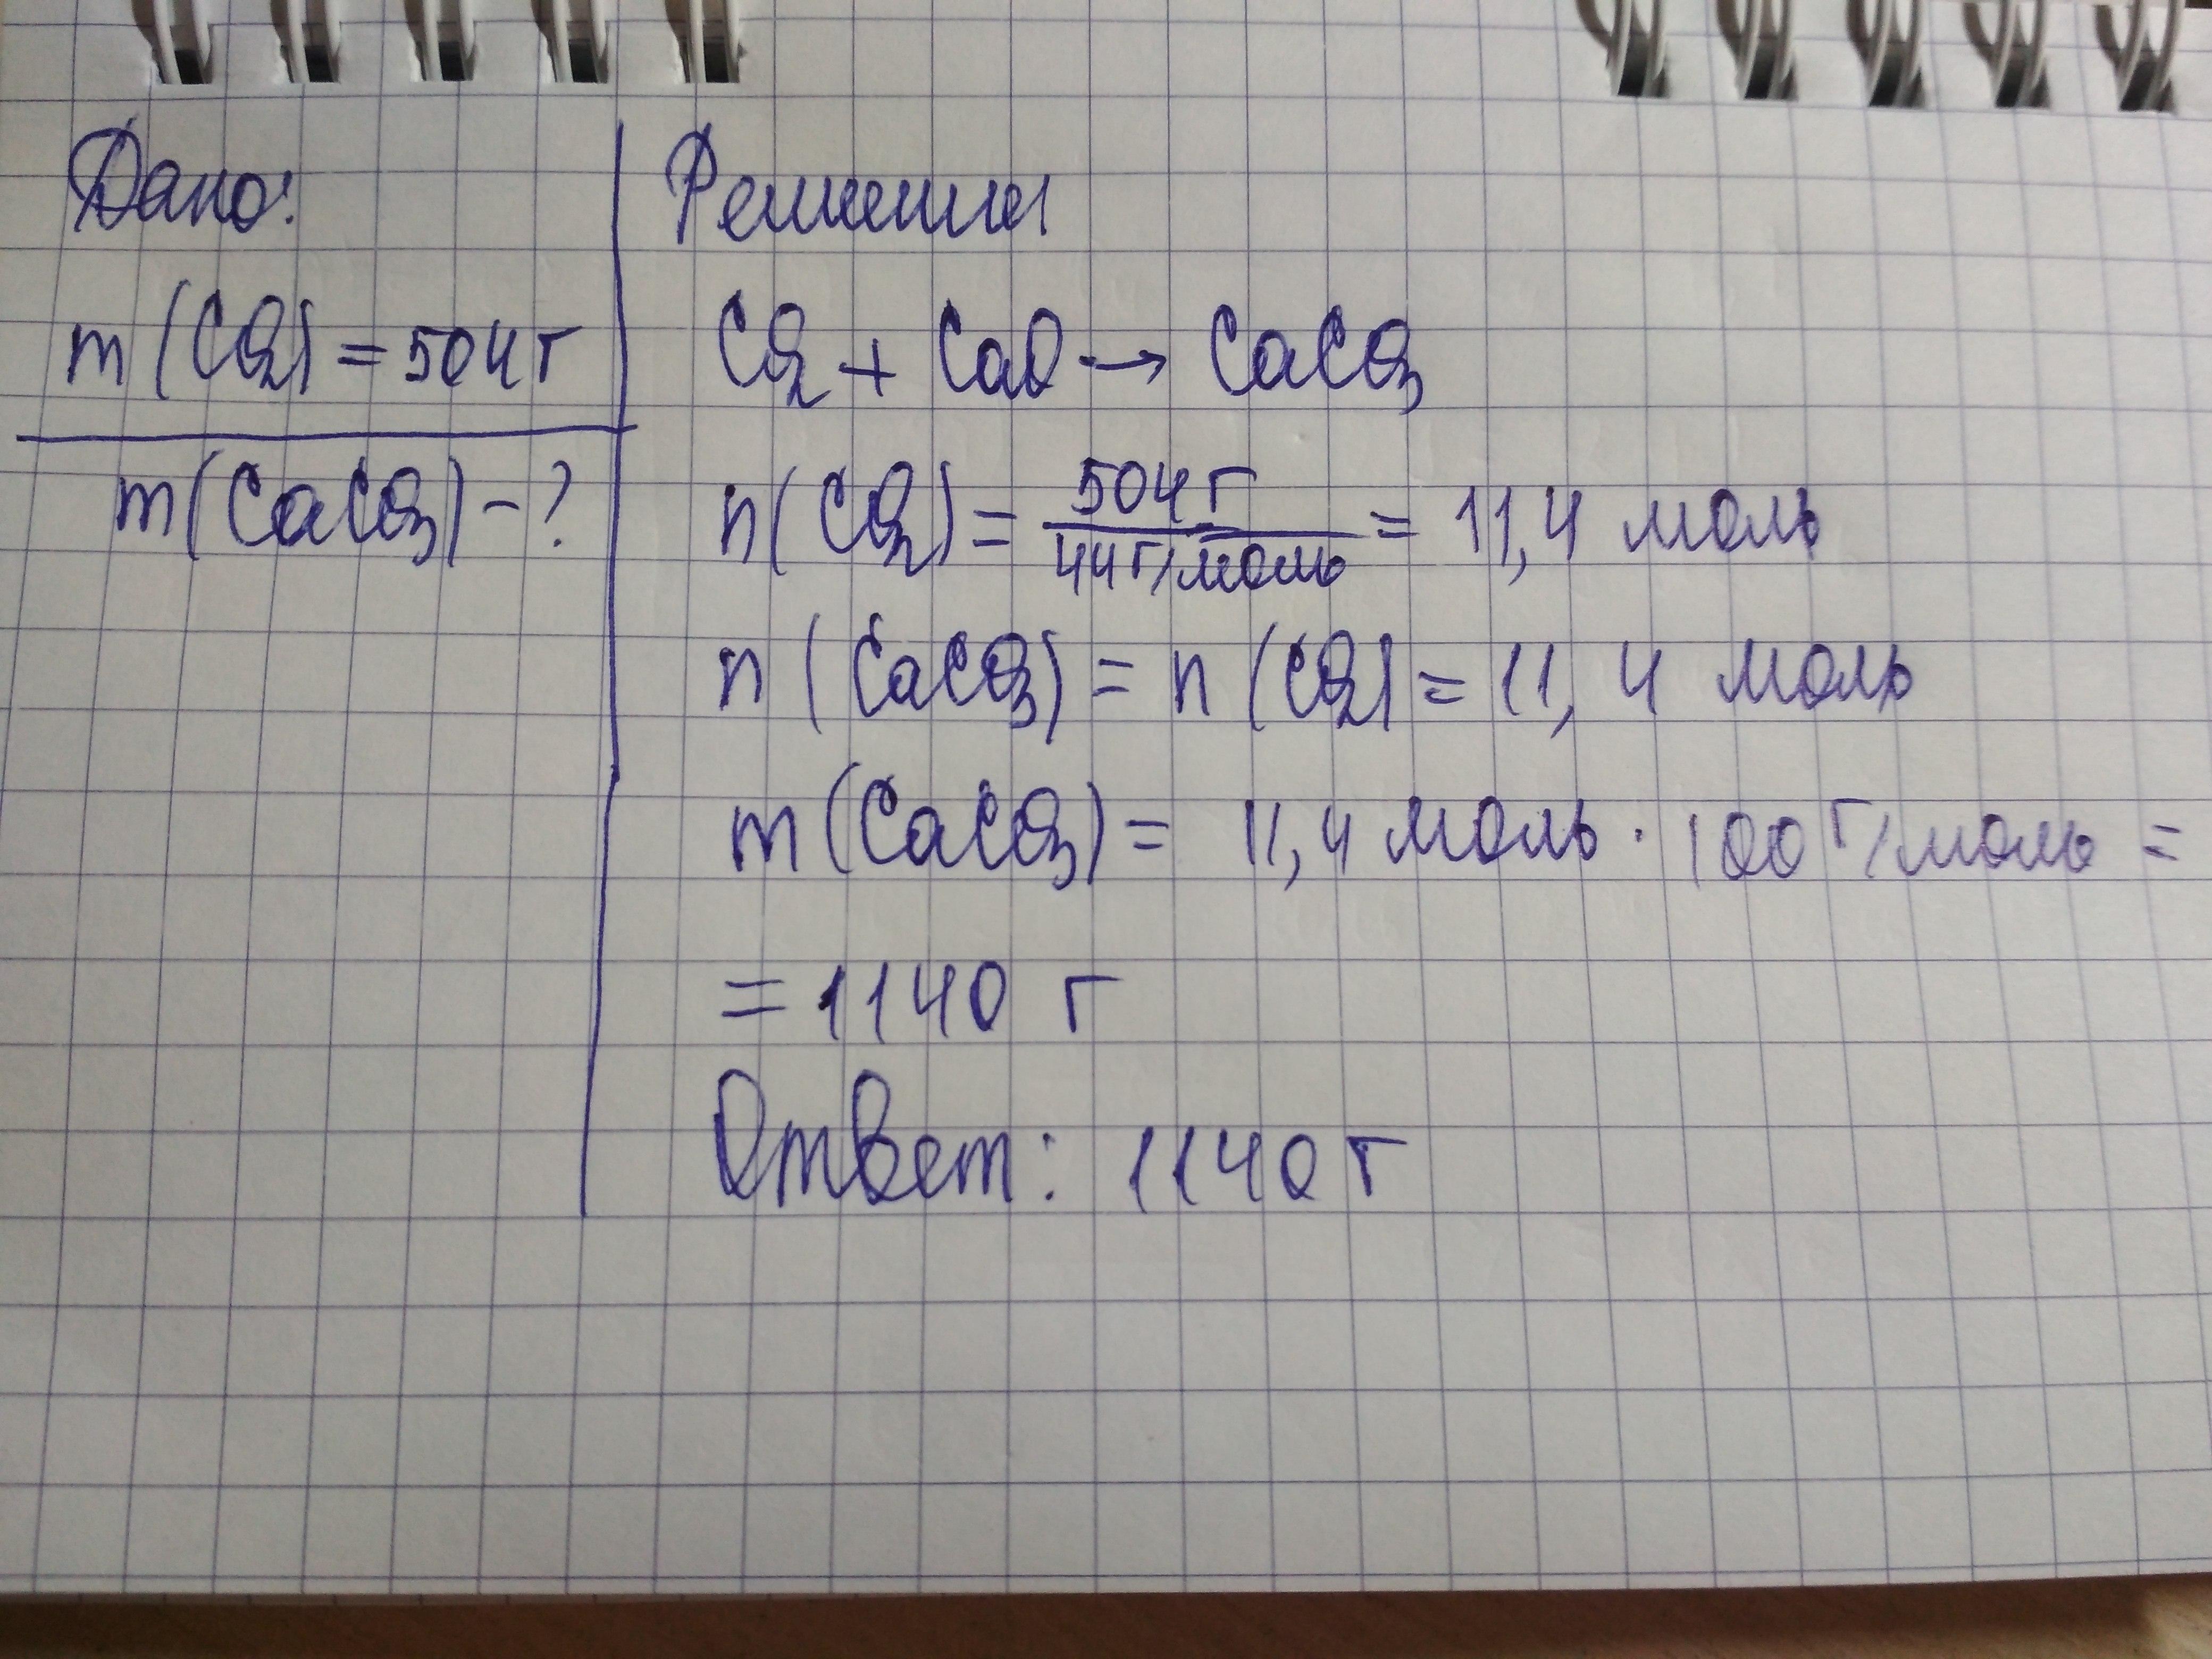 Дано:
m (CO2) = 504 г
m (CaCO3) - ?
Решение
CO2 + CaO → CaCO3
n (CO2) = 504 г / 44 г/моль = 11,4 моль
n (CaCO3) = n (CO2) = 11,4 моль
m (CaCO3) = 11,4 моль · 100 г/моль =
= 1140 г
Ответ: 1140 г